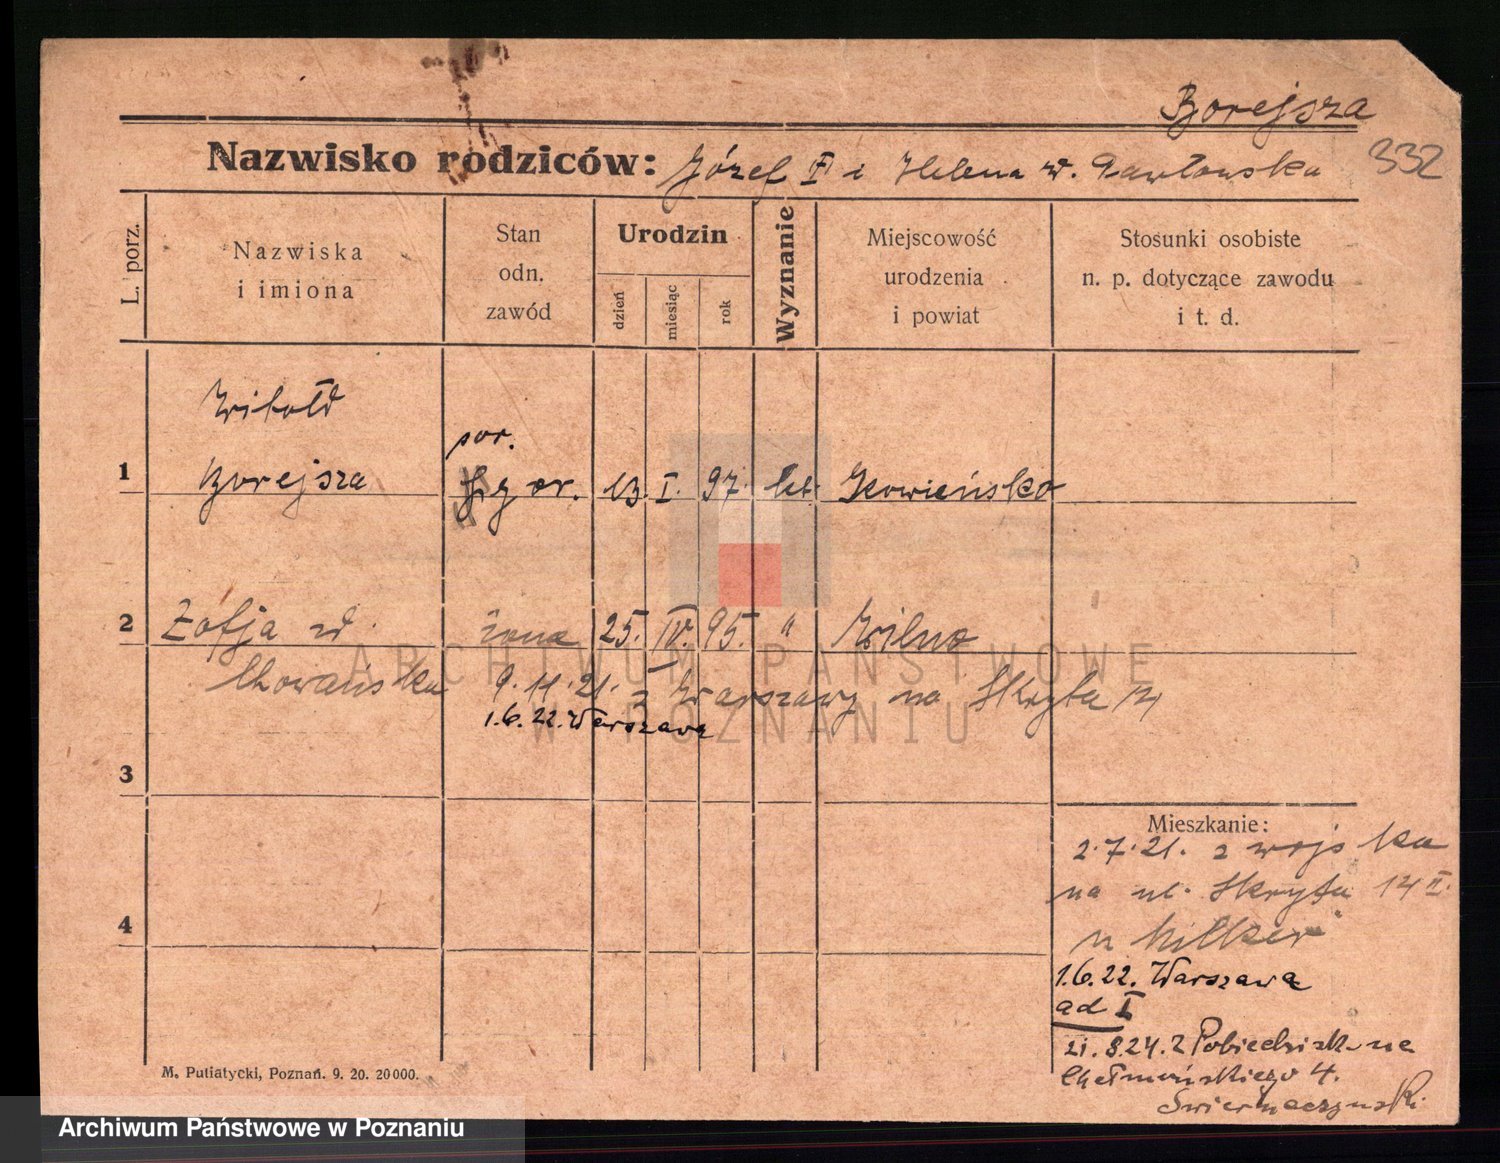 Borejsza
332
Nazwisko rodziców: Józef i Helena Pawłowska
L. porz.
Nazwiska
i imiona
Stan
odn.
zawód
Urodzin
dzień
miesiąc
rok
Wyznanie
Miejscowość
urodzenia
i powiat
Stosunki osobiste
n. p. dotyczące zawodu
i t. d.
Witold
por.
1 Borejsza 13. I. 97. kt. Kowieńsko
2 Zofja żona 25. IV. 95. " Wilno
Chowańska 9.11.21. z Warszawy na Skryta 14
1.6.22. Warszawa
3
Mieszkanie:
2.7.21. z wojska
na ul. Skryta 14 II.
4
1.6.22. Warszawa
ad I
21.8.24. z Pobiedzisk na
Chełmońskiego 4.
M. Putiatycki, Poznań. 9. 20. 20000.
ARCHIWUM PAŃSTWOWE
W POZNANIU
Archiwum Państwowe w Poznaniu